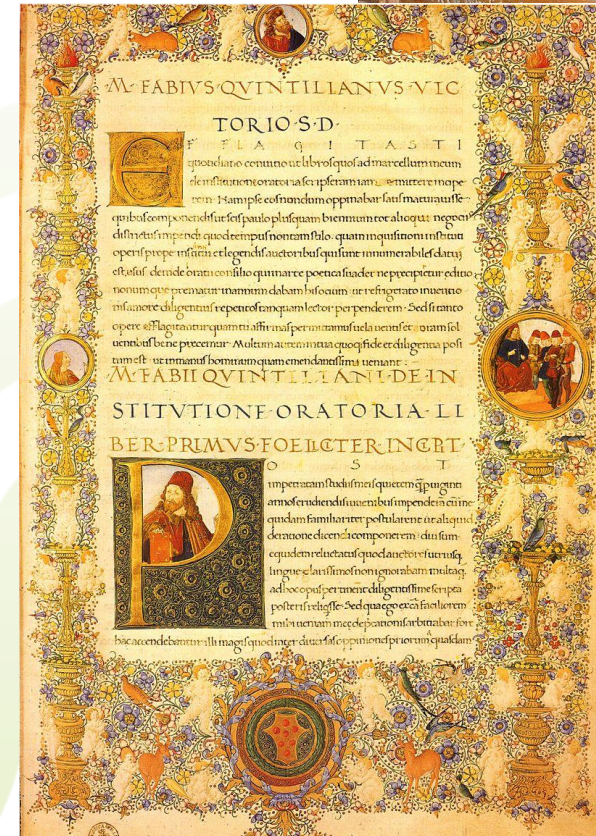 M· FABIVS· QVINTILIANVS· VIC
TORIO· S· D·
E F F L A G I T A S T I
quotidiano conuitio ut libros quos ad marcellum meum
de institutione oratoria scripseram iam emittere incipe
rem. Nam ipse eos nondum oppinabar satis maturuisse
quibus componendis ut scis paulo plusquam biennium tot alioqui negotiis
districtus impendi quod tempus non tam stilo quam inquisitioni instituti
operis prope infiniti et legendis auctoribus qui sunt innumerabiles datum
est usus deinde oratii consilio qui in arte poetica suadet ne precipitetur editio
nonumque prematur in annum dabam his ocium ut refrigerato inuentio
nis amore diligentius repetitos tanquam lector perpenderem. Sed si tanto
opere efflagitantur quam tu affirmas permittamus uela uentis et oram sol
uentibus bene precemur. Multum autem in tua quoque fide et diligentia posi
tum est ut in manus hominum quam emendatissima ueniant.
M· FABII QVINTILIANI· DE· IN
STITVTIONE· ORATORIA· LI
BER· PRIMVS· FOELICTER· INCPIT·
P O S T
impetratam studiis meis quietem
annos erudiendis iuuenibus impenderam cum
quidam familiariter postularent ut aliquid
de ratione dicendi componerem diu sum
equidem reluctatus quod auctores utriusq
lingue clarissimos non ignorabam multaq
ad hoc opus pertinent diligentissime scripta
posteris reliqsse. Sed qua ego ex ca faciliorem
mihi ueniam meę deprecationis arbitrabar fore
hac accendebantur illi magis quod inter diuersas oppiniones priorum quasdam